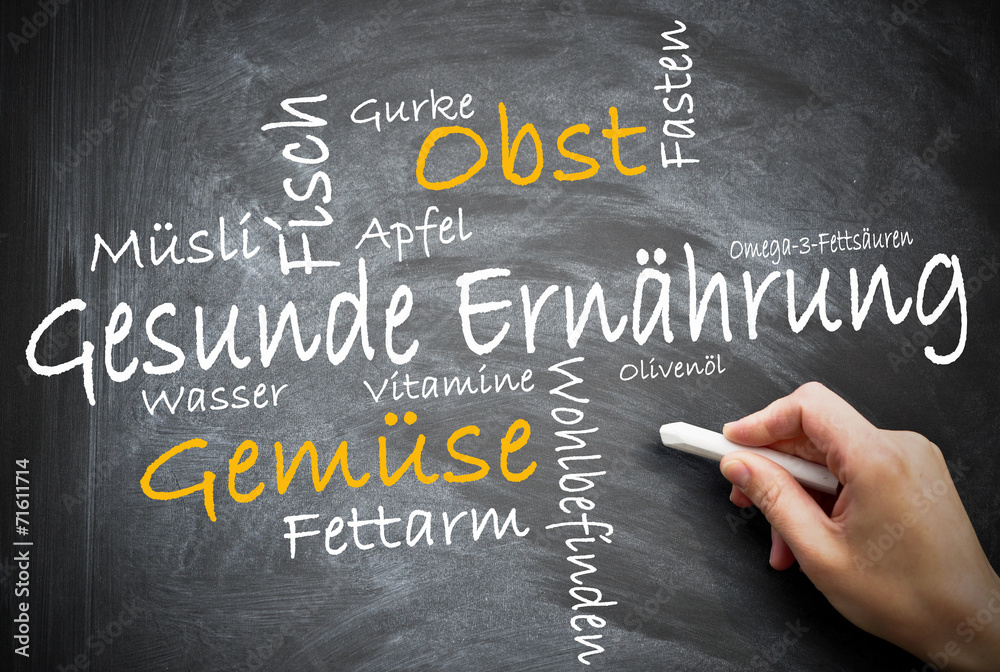 Fasten
Gurke
Obst
Fisch
Müsli
Apfel
Omega-3-Fettsäuren
Gesunde Ernährung
Wasser
Vitamine
Olivenöl
Gemüse
Wohlbefinden
Fettarm
Adobe Stock | #71611714